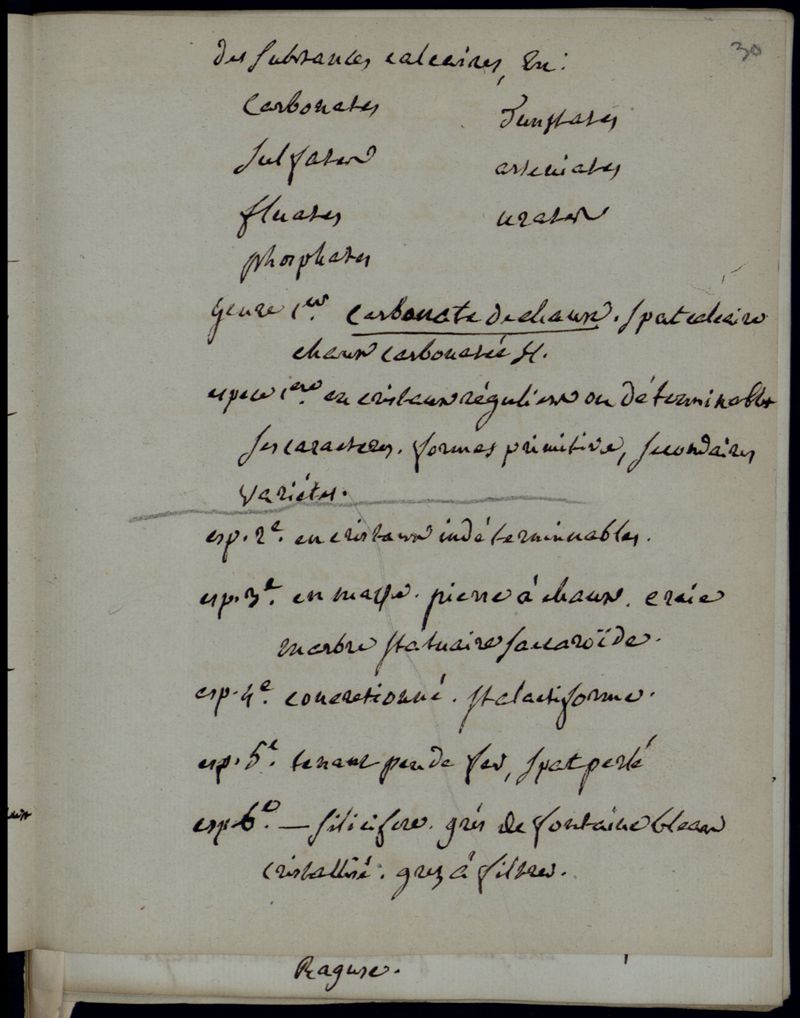 30
des substances calcaires, En:
Carbonates
sulfates
fluates
phosphates
Tunstates
arseniates
urates
Genre 1er. Carbonate de chaux. spat calcaire
chaux carbonatée H.
espece 1ere. en cristaux réguliers ou déterminables
ses caracteres. formes primitive, secondaires
variétés.
esp. 2e. en cristaux indéterminables.
esp. 3e. en masse. pierre à chaux. craie
marbre statuaire saccaroïde.
esp. 4e. concretionné. stalactiforme.
esp. 5e. tenant peu de fer, spat perlé
esp. 6e. — silicifere. grés de fontainebleau
cristallisé. grez à filtrer.
Raguse.